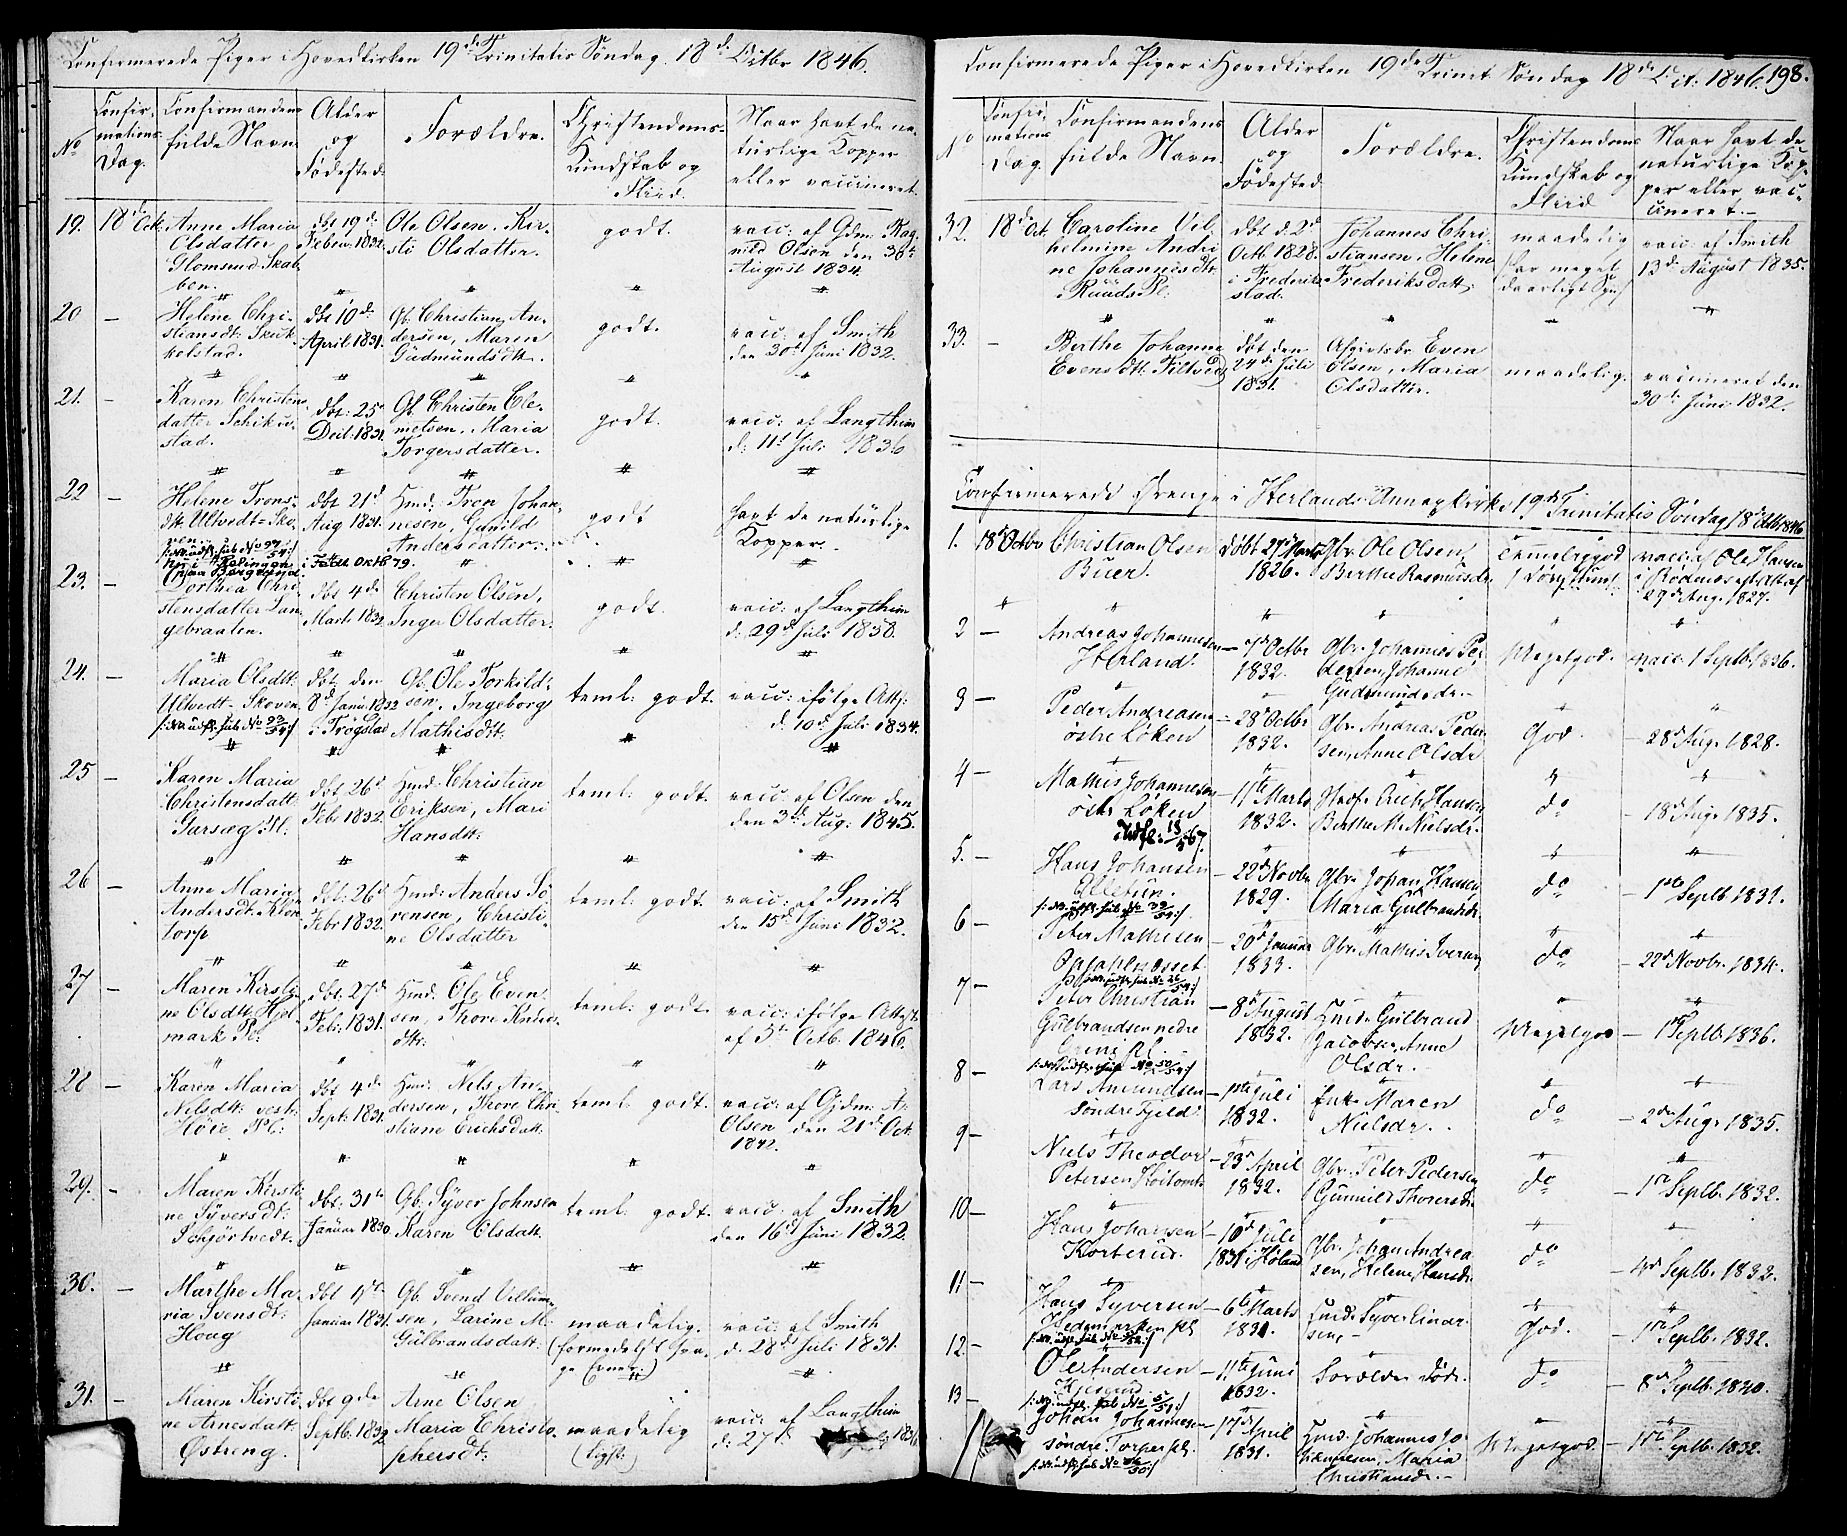 Confirmerede Piger i Hovedkirken 19de Trinitatis Søndag 18d Octbr 1846.
No
Confirmations Dag.
Confirmandens fulde Navn.
Alder og Fødested.
Forældre.
Christendoms-Kundskab og Fliid.
Naar havt de naturlige Kopper eller vaccineret.
19. 18d Oct. Anne Maria Olsdatter Glomsrud Skabben.
dbt 19d Febru: 1832.
Ole Olsen, Kirsti Olsdatter.
godt.
vacc: af Gdm: Olsen den 30te August 1834.
20 – Helene Christiansdt: Skukkelstad.
dbt 10d April 1831.
Gb. Christian Andersen, Maren Gudmundsdtt.
godt.
vacc: af Smith den 30t Juni 1832.
21. – Karen Christensdatter
dbt: 25d Dcbr: 1831.
Gb. Christen Clemetsen, Maria Torgersdatter.
godt.
vacc: af Langthim d: 11t Juli 1836
22 – Helene Tronsdtt. Ultvedt-Skoven.
dbt 21d Aug 1831.
Hmd: Tron Johannesen, Gunild Andersdatter.
godt
havt de naturlige Kopper.
23. – Dorthea Christensdatter Langebraaten.
dbt 4de Marts 1832
Christen Olsen, Inger Olsdatter.
godt.
vacc: af Langthim d: 29d Juli 1838.
24. – Maria Olsdtt: Ultvedt-Skoven
dbt den 8d Janu: 1832 i Trøgstad
Gb. Ole Torkildsen, Ingeborg Mathisdtt:
teml: godt.
vacc: ifølge Att: d. 10d Juli 1834.
25 – Karen Maria Christensdatt: Garseg Pl:
dbt 26d Febr 1832.
Hmd: Christian Eriksen, Mari Hansdtt:
teml: godt.
vacc: af Olsen den den 3d Aug: 1845.
26 – Anne Maria Andersdt: Klontorp
dbt: 26d Febr 1832.
Hmd: Anders Sørensen, Christine Olsdatter
teml: godt.
vacc: af Smith den 15d Juni 1832.
27 – Maren Kirstine Olsdtt. Hjelmark Pl:
dbt: 27d Feb: 1831.
Hmd: Ole Evensen, Thore Knudsdtr:
teml: godt.
vacc: ifølge Attest af 3d Octb. 1846.
28 – Karen Maria Nilsdtt: vest: Høie Pl:
dbt 4de Sept: 1831.
Hmd: Nils Andersen, Thore Christiane Erichsdatt.
teml: godt.
vacc: af Gjdm: A: Olsen den 21d Oct. 1842.
29. – Maren Kirstine Syversdt: Schjørtvedt.
dbt: 31te Januar 1830.
Gb. Syver Johnsen Karen Olsdatt.
teml: godt.
vacc: af Smith den 16d Juni 1832.
30. – Marthe Maria Svensdt: Houg
dbt 1st Januar 1831.
Gb. Svend Villumsen, Larine M: Gulbrandsdatt:
maadelig. (formedelst svage Evner.)
vacc: af Smith d. 28d Juli 1831.
31. – Maren Kirstine Arnesdatt: Østreng.
dbt 9de Septb. 1832
Arne Olsen Maria Christophersdt:
maadelig
vacc: af Langthim d: 27d 1836
Confirmerede Piger i Hovedkirken 19de Trinit Søndag 18de Oct. 1846.
198.
No
Confirmations Dag.
Confirmandens fulde Navn.
Alder og Fødested
Forældre.
Christendoms Kundskab og Fliid
Naar havt de naturlige Kopper eller vaccineret.
32. 18d Oct. Caroline Vilhelmine Andrine Johannesdtt. Ruuds Pl:
dbt d. 2d Octb. 1828. i Frederikstad.
Johannes Christiansen, Helene Frederiksdatt.
maadelig (har meget daarligt Syn)
vacc. af Smith 13d August 1835.
33. – Berthe Johanne Evensdtt: Tiltved
dbt den 24d Juli 1831.
Even Olsen, Maria Olsdatter.
maadelig.
vaccineret den 30te Juni 1832.
Confirmerede Drenge i Herlands Annexkirke 19d Trinitatis Søndag 18d Octb 1846
1. 18d Octbr Christian Olsen Buer.
døbt 27d Marts 1826.
Gbr. Ole Olsen, Berthe Rasmusdr.
Temmeliggod
vacc: af Ole Hansen i Rødenæs 29d Aug. 1827.
2 – Andreas Johannesen Herland.
– 7d Octbr 1832.
Gbr. Johannes Pedersen, Johanne Gudmundsdr.
Megetgod.
vacc. 1 Septb. 1836.
3 – Peder Andreasen østre Løken
– 28d Octbr 1832.
Gbr. Andreas Pedersen, Anne Olsdr
God.
– 28d Aug. 1828.
4 – Mathis Johannesen østre Løken
– 11te Marts 1832.
Erich Hansen, Berthe M. Nielsdr.
do
– 18d Aug. 1835.
5. – Hans Johansen
– 22d Novbr 1829.
Gbr. Johan Hansen, Maria Gulbrandsdr.
do
– 1ste Septb. 1831.
6 – Peter Mathisen
– 20d Januar 1833.
Gbr. Mathis Iversen
do
– 22d Novbr. 1834.
7 – Peter Christian Gulbrandsen nedre
– 8d August 1832.
Hmd. Gulbrand Jacobsen, Anne Olsdr.
Megetgod
– 1ste Septb. 1836.
8 – Lars Amundsen søndre Fjeld
– 1ste Juli 1832.
Enke Maren Nielsdr.
do
– 2den Aug. 1835.
9 – Niels Theodor Petersen
– 23d April 1832.
Gbr. Peter Pedersen, Gunnild Thoresdr.
do
– 1ste Septb. 1832.
10 – Hans Johansen Korterud.
– 10d Juli 1831 i Høland
Gbr. Johan Andreasen, Helene Hansdr.
do
– 4de Septb. 1832.
11 – Hans Syversen Hedemarken pl.
– 6te Marts 1831.
Hmd. Syver Einarsen.
God.
– 1ste Septb. 1832.
12 – Ole Andersen
– 11te Juni 1832.
Forældre døde.
do
– 8d Septb. 1830.
13 – Johan Johannesen søndre Torper pl.
– 17d April 1831.
Hmd. Johannes Johannesen, Maria Christiansdr.
Megetgod.
– 1ste Septb. 1832.